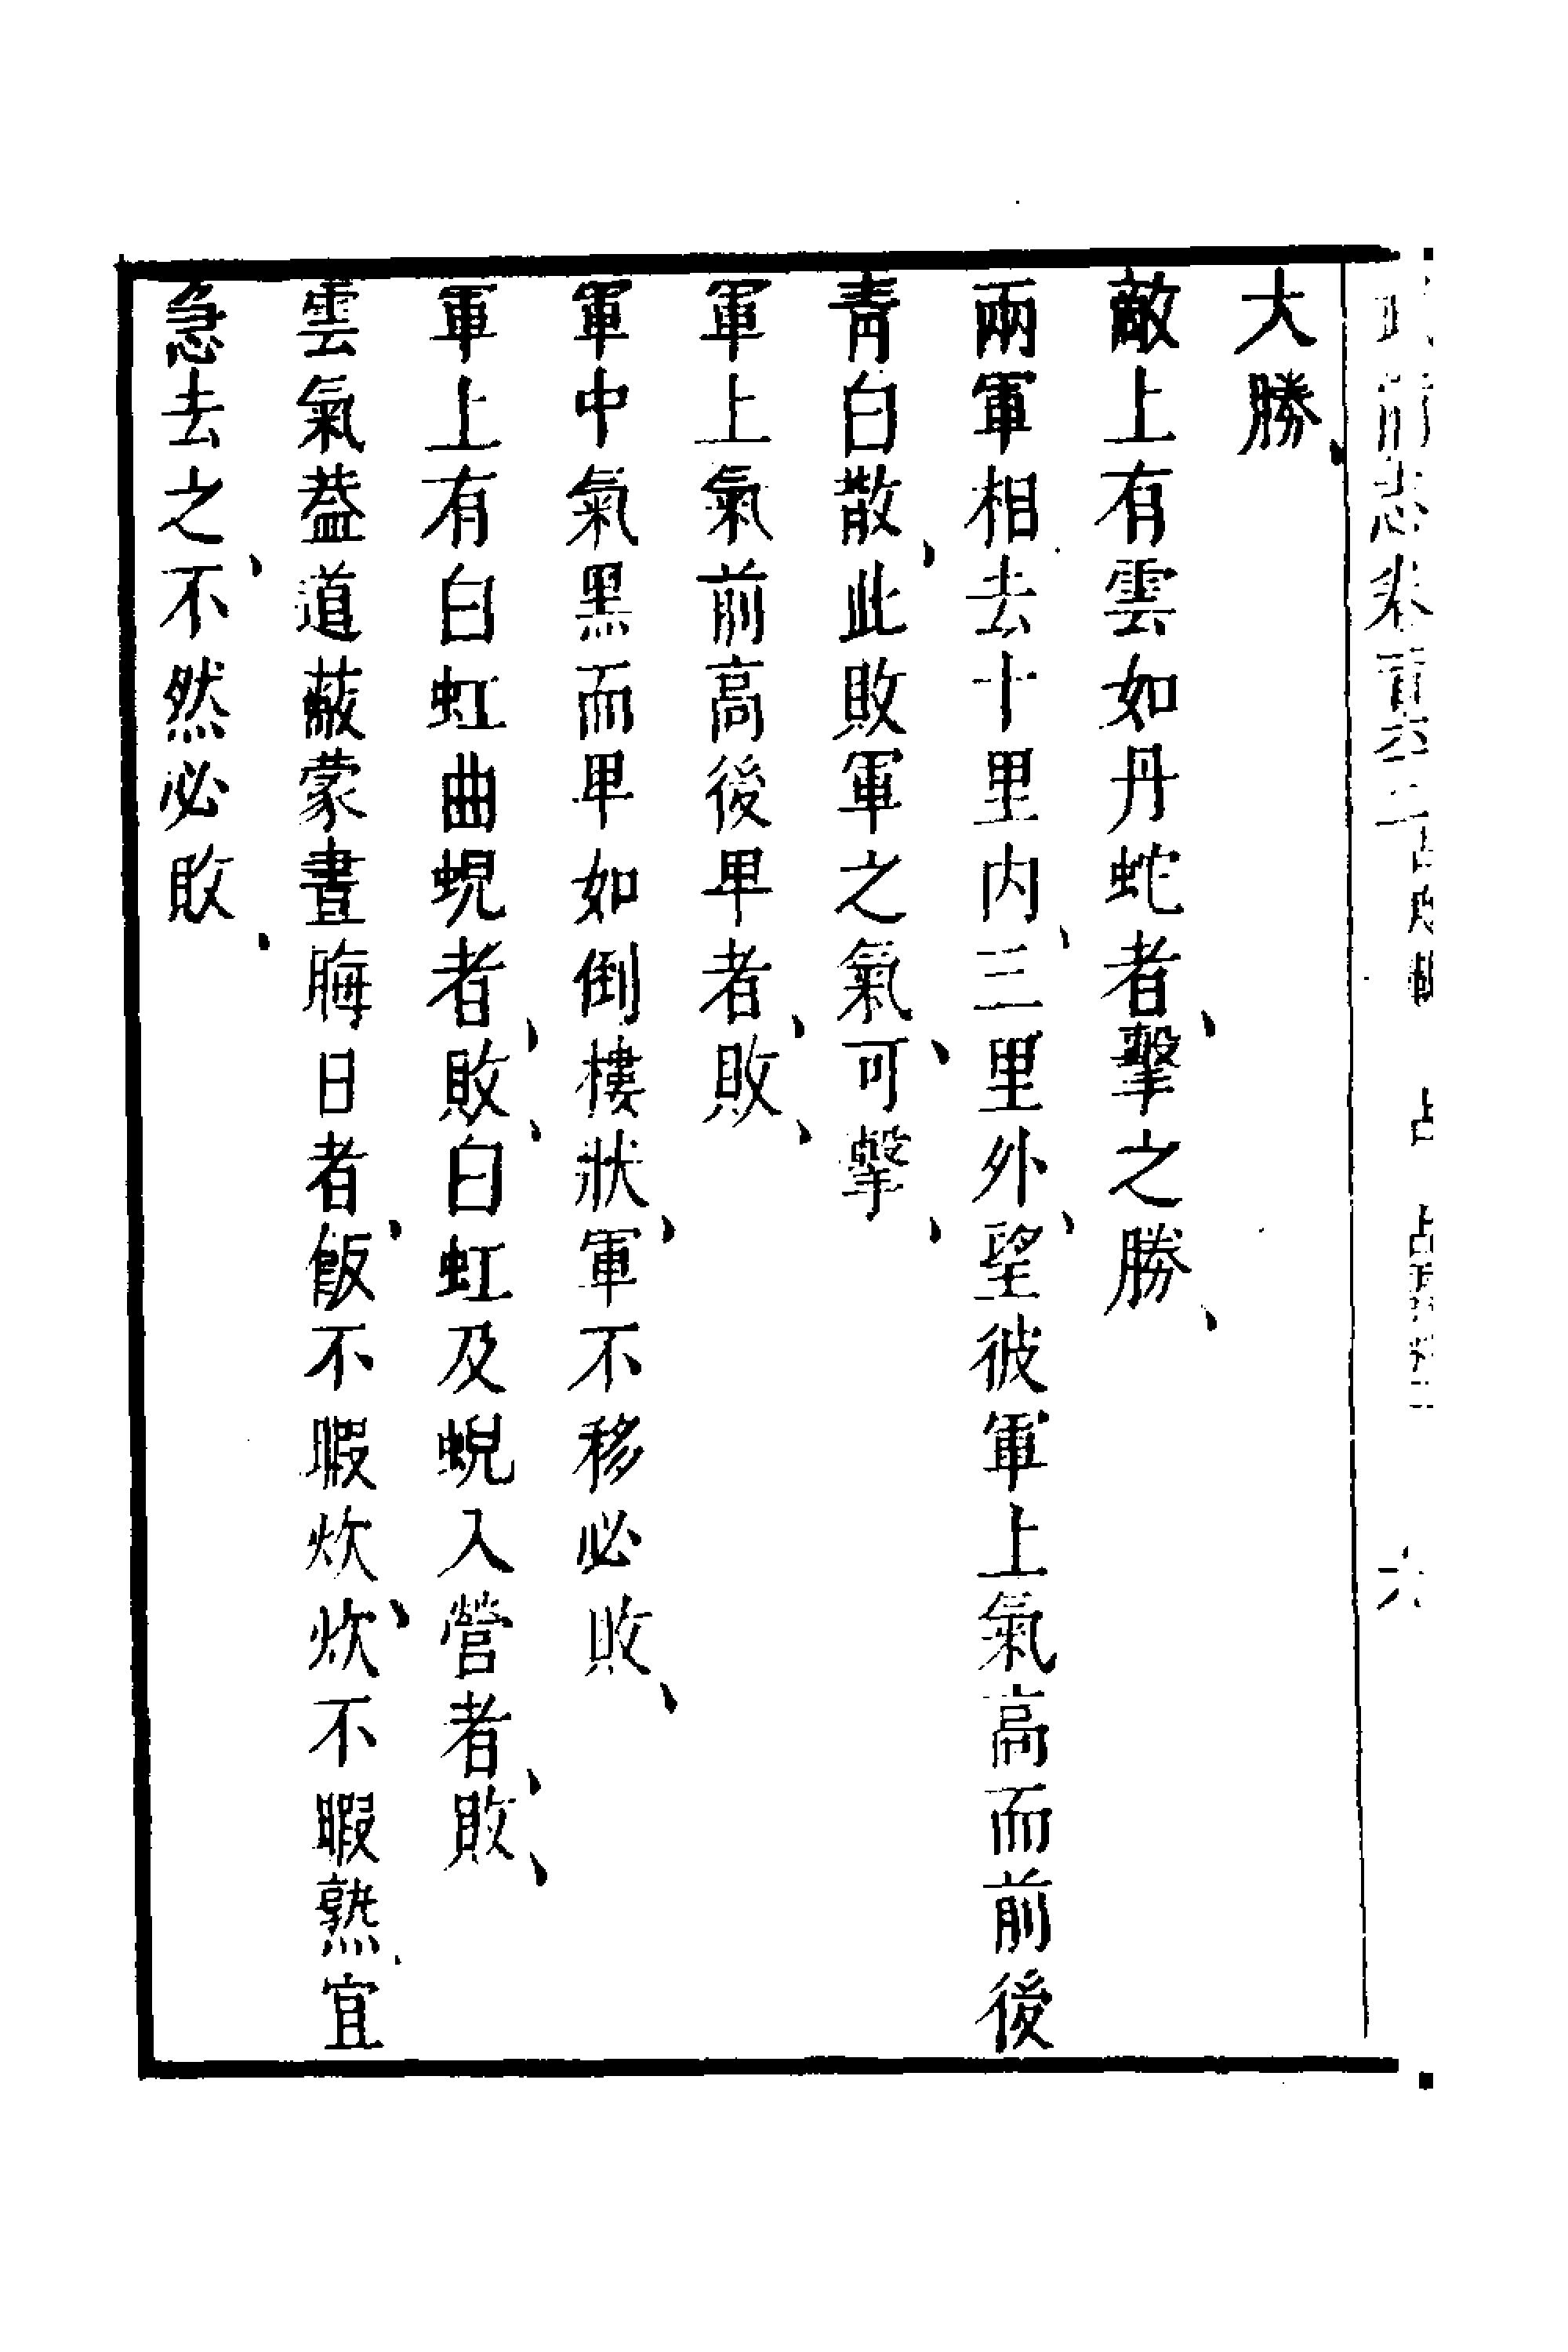 大勝、
敵上有雲如丹蛇者、擊之勝、
兩軍相去十里内、三里外、望彼軍上氣高而前後
青白散、此敗軍之氣、可擊、
軍上氣前高後卑者、敗、
軍中氣黑而卑如倒樓狀、軍不移必敗、
軍上有白虹曲蜺者、敗、白虹及蜺入營者、敗、
雲氣蓋道蔽蒙晝晦日者、飯不暇炊、炊不暇熟、宜
急去之、不然必敗、